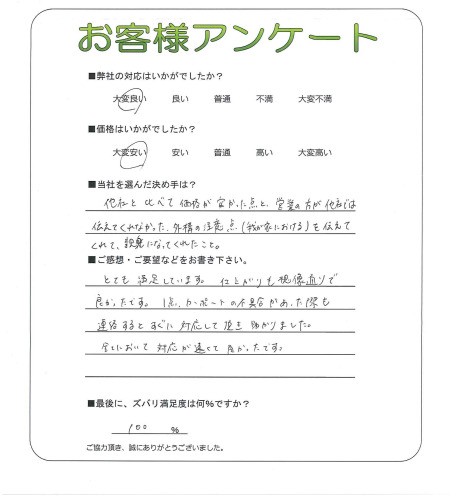 お客様アンケート
■弊社の対応はいかがでしたか？
大変良い 良い 普通 不満 大変不満
■価格はいかがでしたか？
大変安い 安い 普通 高い 大変高い
■当社を選んだ決め手は？
他社と比べて価格が安かった点と、営業の方が他社では
伝えてくれなかった、外構の注意点(我が家における)を伝えて
くれて、親身になってくれたこと。
■ご感想・ご要望などをお書き下さい。
とても満足しています。仕上がりも想像通りで
良かったです。1点、カーポートの不具合があった際も
連絡するとすぐに対応して頂き助かりました。
全てにおいて対応が速くて良かったです。
■最後に、ズバリ満足度は何%ですか？
100 %
ご協力頂き、誠にありがとうございました。